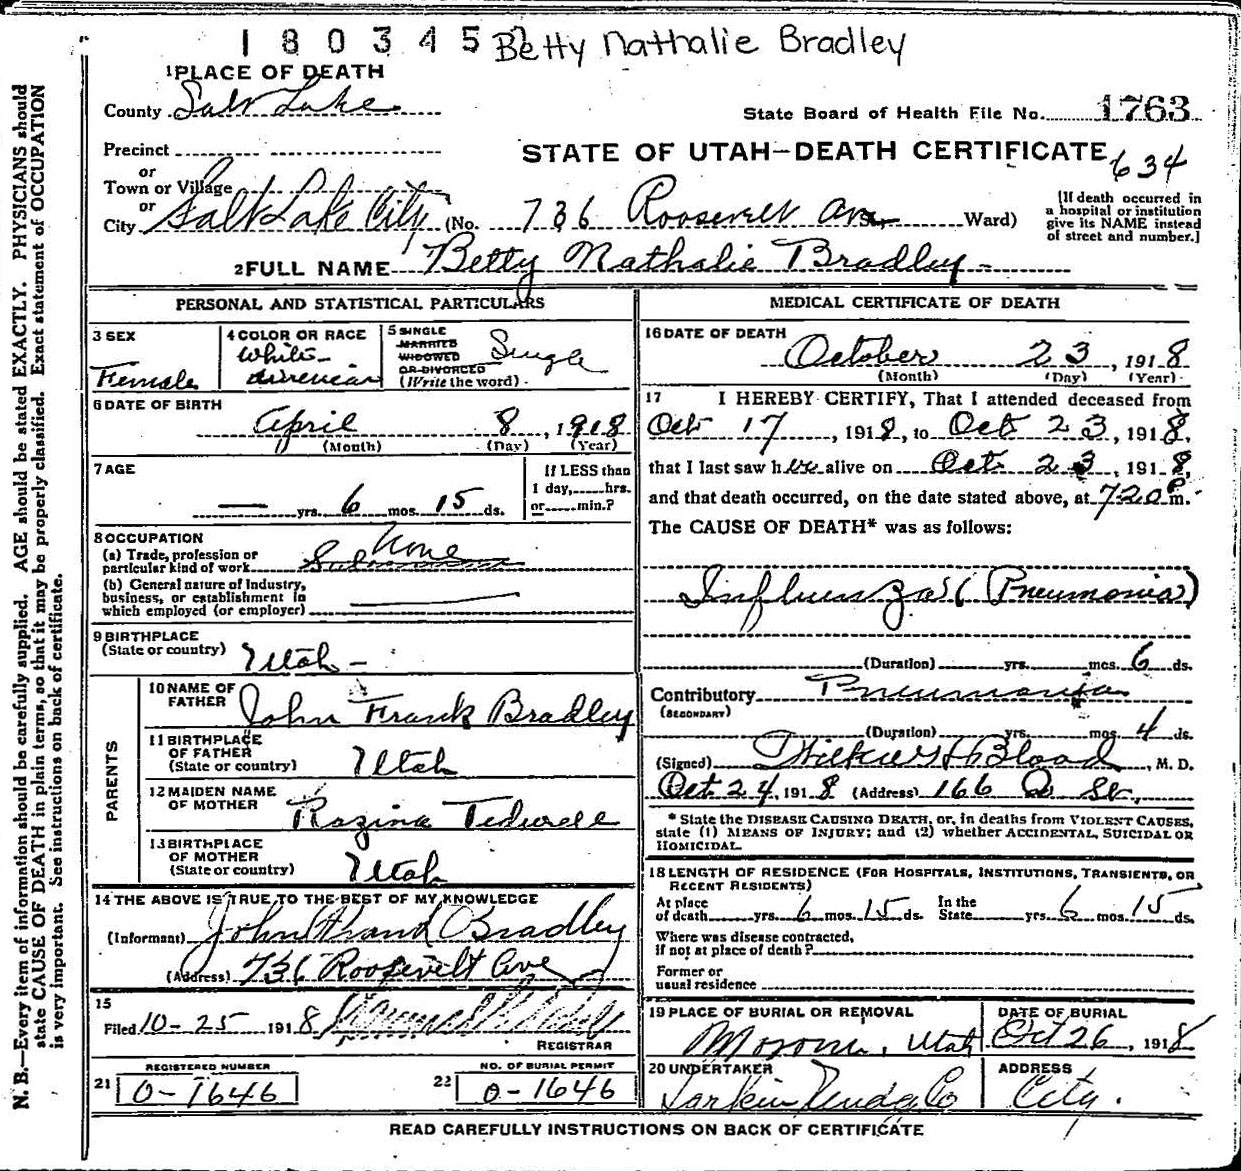 180345 Betty Nathalie Bradley
1 PLACE OF DEATH
County Salt Lake
State Board of Health File No. 1763
Precinct
STATE OF UTAH—DEATH CERTIFICATE 634
or
Town or Village
or
City Salt Lake City (No. 736 Roosevelt Ave Ward)
[If death occurred in a hospital or institution give its NAME instead of street and number.]
2 FULL NAME Betty Nathalie Bradley
PERSONAL AND STATISTICAL PARTICULARS
3 SEX
Female
4 COLOR OR RACE
White
American
5 SINGLE
MARRIED
WIDOWED
OR DIVORCED
(Write the word)
Single
6 DATE OF BIRTH
April 8, 1918
(Month) (Day) (Year)
7 AGE
— yrs. 6 mos. 15 ds.
If LESS than
1 day,......hrs.
or......min.?
8 OCCUPATION
(a) Trade, profession or
particular kind of work None
(b) General nature of Industry,
business, or establishment in
which employed (or employer)
9 BIRTHPLACE
(State or country) Utah
PARENTS
10 NAME OF
FATHER John Frank Bradley
11 BIRTHPLACE
OF FATHER
(State or country) Utah
12 MAIDEN NAME
OF MOTHER Razina
13 BIRTHPLACE
OF MOTHER
(State or country) Utah
14 THE ABOVE IS TRUE TO THE BEST OF MY KNOWLEDGE
(Informant) John Frank Bradley
(Address) 736 Roosevelt Ave
15
Filed 10-25 1918
REGISTRAR
REGISTERED NUMBER
21 0-1646
NO. OF BURIAL PERMIT
22 0-1646
MEDICAL CERTIFICATE OF DEATH
16 DATE OF DEATH
October 23, 1918
(Month) (Day) (Year)
17 I HEREBY CERTIFY, That I attended deceased from
Oct 17, 1918, to Oct 23, 1918,
that I last saw her alive on Oct 23, 1918,
and that death occurred, on the date stated above, at 720 P m.
The CAUSE OF DEATH* was as follows:
Influenza (Pneumonia)
(Duration) yrs. mos. 6 ds.
Contributory Pneumonia
(SECONDARY)
(Duration) yrs. mos. 4 ds.
(Signed) Blood, M. D.
Oct 24, 1918 (Address) 166 St.
* State the DISEASE CAUSING DEATH, or, in deaths from VIOLENT CAUSES,
state (1) MEANS OF INJURY; and (2) whether ACCIDENTAL, SUICIDAL OR
HOMICIDAL.
18 LENGTH OF RESIDENCE (FOR HOSPITALS, INSTITUTIONS, TRANSIENTS, OR
RECENT RESIDENTS)
At place
of death yrs. 6 mos. 15 ds. In the
State yrs. 6 mos. 15 ds.
Where was disease contracted,
if not at place of death?
Former or
usual residence
19 PLACE OF BURIAL OR REMOVAL
Moroni, Utah
DATE OF BURIAL
Oct 26, 1918
20 UNDERTAKER
Larkin Co
ADDRESS
City.
READ CAREFULLY INSTRUCTIONS ON BACK OF CERTIFICATE
N. B.—Every item of information should be carefully supplied. AGE should be stated EXACTLY. PHYSICIANS should
state CAUSE OF DEATH in plain terms, so that it may be properly classified. Exact statement of OCCUPATION
is very important. See instructions on back of certificate.